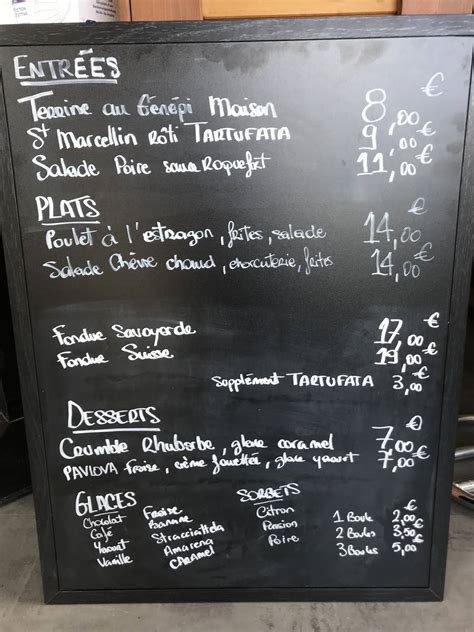 ENTRÉES
Terrine au Génépi Maison 8,00 €
St Marcellin rôti TARTUFATA 9,00 €
Salade Poire sauce Roquefort 11,00 €
PLATS
Poulet à l'estragon, frites, salade 14,00 €
Salade Chèvre chaud, charcuterie, frites 14,00 €
Fondue Savoyarde 17,00 €
Fondue Suisse 19,00 €
Supplément TARTUFATA 3,00 €
DESSERTS
Crumble Rhubarbe, glace caramel 7,00 €
PAVLOVA Fraise, crème fouettée, glace yaourt 7,00 €
GLACES SORBETS
Chocolat Fraise Citron 1 Boule 2,00 €
Café Banane Passion 2 Boules 3,50 €
Yaourt Stracciatella Poire 3 Boules 5,00 €
Vanille Amarena
CARAMEL